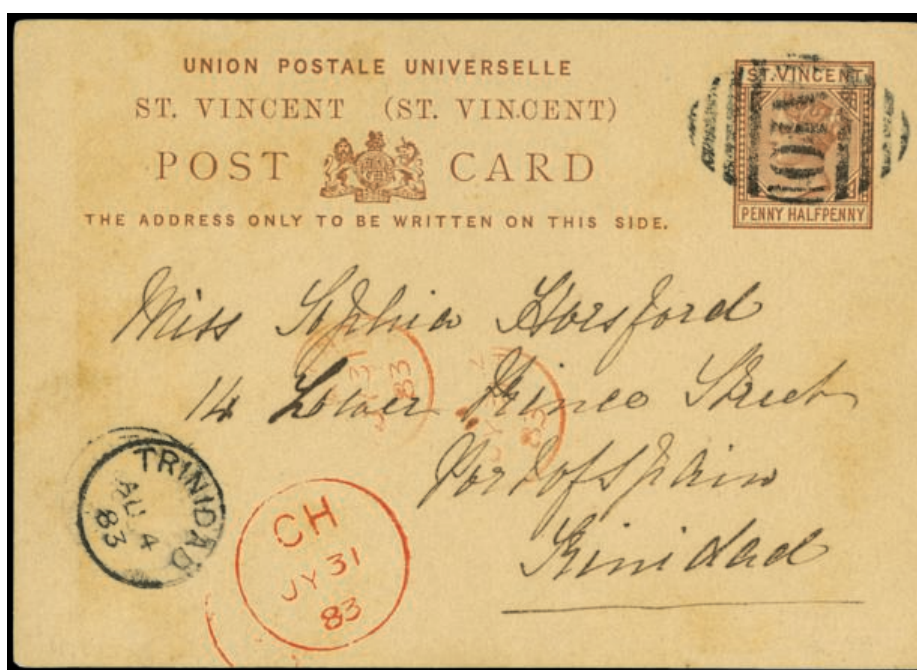 UNION POSTALE UNIVERSELLE
ST. VINCENT (ST. VINCENT)
POST CARD
THE ADDRESS ONLY TO BE WRITTEN ON THIS SIDE.
ST. VINCENT
PENNY HALFPENNY
Miss Sophia Horsford
14 Lower Prince Street
Port of Spain
Trinidad
83
83
TRINIDAD
AU 4
83
CH
JY 31
83